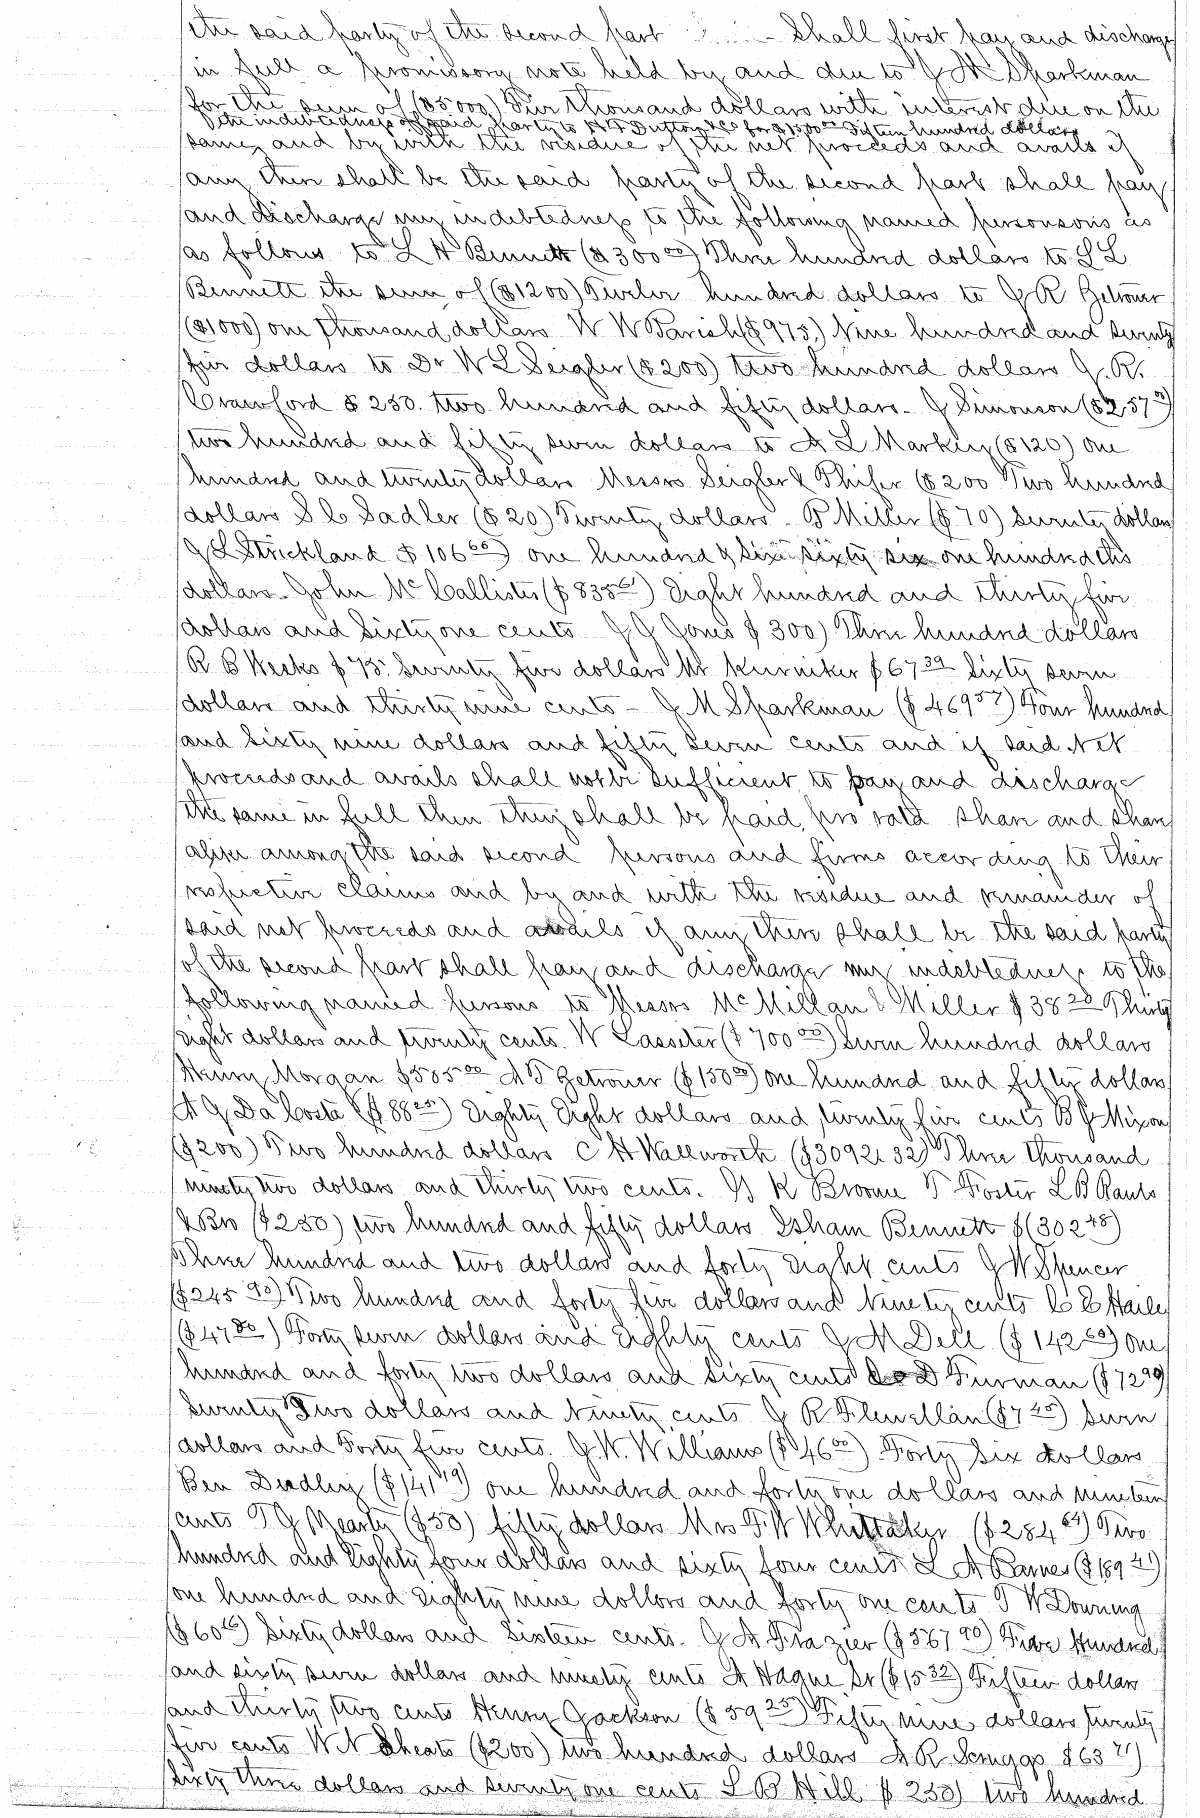 the said party of the second part shall first pay and discharge
in full a promissory note held by and due to J M Sparkman
for the sum of ($5000) Five thousand dollars with interest due on the
the indebtedness of said party to H F Dutton & Co for $1500.00 Fifteen hundred dollars
same, and by with the residue of the net proceeds and avails if
any there shall be the said party of the second part shall pay
and discharge my indebtedness to the following named personsons as
as follows to L H Bennett ($300 00) Three hundred dollars to L L
Bennett the sum of ($1200) Twelve hundred dollars to J R Zetrouer
($1000) one thousand dollars W W Parish ($975,) Nine hundred and seventy
five dollars to Dr W L Seigler ($200) two hundred dollars J. R.
Crawford $250. two hundred and fifty dollars - J Simonson ($257 00)
two hundred and fifty seven dollars to A L Markey ($120) one
hundred and twenty dollars Messrs Seigler & Phifer ($200 Two hundred
dollars S C Sadler ($20) Twenty dollars - B Miller ($70) Seventy dollars
J L Strickland $106 66) one hundred & six sixty six one hundredths
dollars - John McCallister ($835 61) Eight hundred and thirty five
dollars and Sixty one cents J J Jones $300) Three hundred dollars
R B Weeks $75. Seventy five dollars M Kurniker $67 39 Sixty seven
dollars and thirty nine cents - J M Sparkman ($469 57) Four hundred
and Sixty nine dollars and fifty seven cents and if said Net
proceeds and avails shall not be sufficient to pay and discharge
the same in full then they shall be paid, pro rata share and share
alike among the said second persons and firms according to their
respective claims and by and with the residue and remainder of
said net proceeds and avails if any there shall be the said party
of the second part shall pay and discharge my indebtedness to the
following named persons to Messrs McMillan & Miller $38 20 Thirty
Eight dollars and twenty cents. W Lasseter ($700 00) Seven hundred dollars
Henry Morgan $505 00 A T Zetrouer ($150 00) one hundred and fifty dollars
A G Da Costa ($88 25) Eighty Eight dollars and twenty five cents B J Mixon
($200) Two hundred dollars C H Wallworth ($3092 32) Three thousand
ninety two dollars and thirty two cents. G K Broome T Foster L B Rauls
& Bro ($250) two hundred and fifty dollars Isham Bennett $(302 48)
Three hundred and two dollars and forty Eight cents J W Spencer
($245 90) Two hundred and forty five dollars and Ninety cents C E Haile
($47 80) Forty seven dollars and Eighty cents J A Dell ($142 60) one
hundred and forty two dollars and Sixty cents D Furman ($72 90)
Seventy Two dollars and Ninety cents J R Flewellan ($7 45) Seven
dollars and Forty five cents. J W. Williams ($46 00) Forty Six dollars
Ben Dudley ($141 19) one hundred and forty one dollars and nineteen
cents T J Mearty ($50) fifty dollars Mrs F W Whittaker ($284 64) Two
hundred and Eighty four dollars and sixty four cents L A Barnes ($189 41)
one hundred and Eighty nine dollars and forty one cents T W Downing
($60 16) Sixty dollars and Sixteen cents. J A Frazier ($567 90) Five Hundred
and sixty seven dollars and ninety cents A Hague Sr ($15 32) Fifteen dollars
and thirty two cents Henry Jackson ($59 25) Fifty nine dollars twenty
five cents W N Sheats ($200) two hundred dollars A R Scruggs $63 71)
Sixty three dollars and seventy one cents L B Hill $250) two hundred